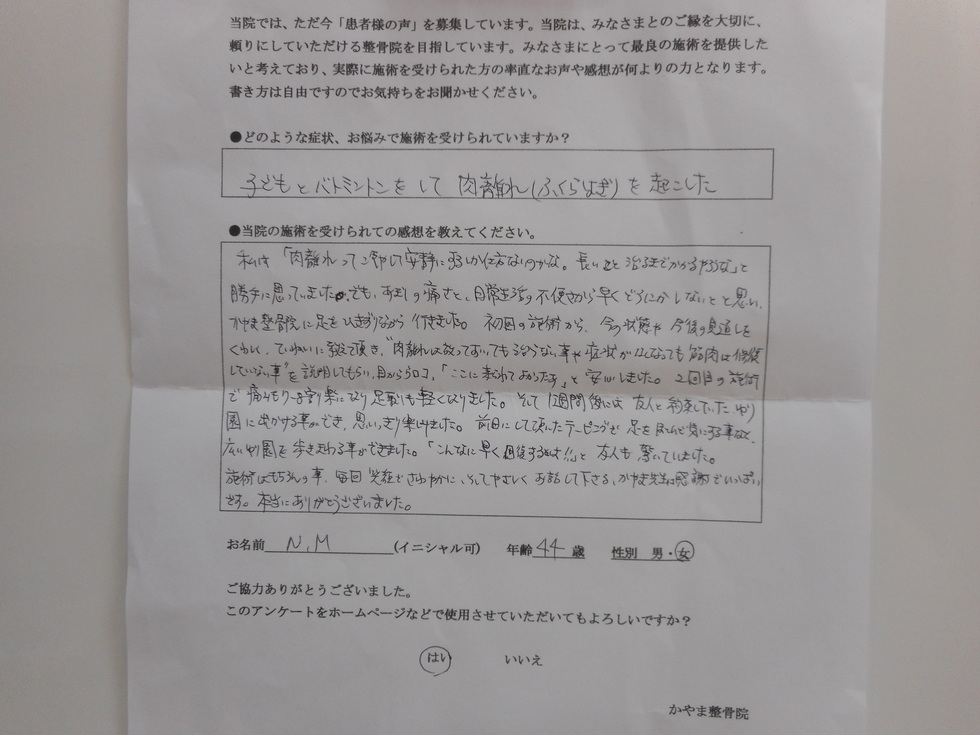 当院では、ただ今「患者様の声」を募集しています。当院は、みなさまとのご縁を大切に、
頼りにしていただける整骨院を目指しています。みなさまにとって最良の施術を提供した
いと考えており、実際に施術を受けられた方の率直なお声や感想が何よりの力となります。
書き方は自由ですのでお気持ちをお聞かせください。
●どのような症状、お悩みで施術を受けられていますか？
子どもとバトミントンをして肉離れ(ふくらはぎ)を起こした
●当院の施術を受けられての感想を教えてください。
私は「肉離れって安静にするしか仕方ないのかな。長いこと治るまでかかるやろうな」と
勝手に思っていました。でも、あまりの痛さと、日常生活の不便さから早くどうにかしないとと思い、
かやま整骨院に足をひきずりながら行きました。初回の施術から、今の状態や今後の見通しを
くわしく、ていねいに教えて頂き、"肉離れは放っておいても治らない事や症状がなくなっても筋肉は修復
していない事"を説明してもらい、目からウロコ、「ここに来れてよかったぁ」と安心しました。2回目の施術
で痛みも割り楽になり足取りも軽くなりました。そして1週間後には友人と約束していたゆり
園に出かける事ができ、思いっきり楽しめました。前日にして頂いたテーピングで足をほとんど気にする事なく、
広いゆり園を歩きまわる事ができました。「こんなに早く回復するとは!!」と友人も驚いていました。
施術はもちろんの事、毎回笑顔でさわやかに、そしてやさしくお話して下さる、かやま先生に感謝でいっぱい
です。本当にありがとうございました。
お名前 N.M (イニシャル可) 年齢 44 歳 性別 男・女
ご協力ありがとうございました。
このアンケートをホームページなどで使用させていただいてもよろしいですか？
はい いいえ
かやま整骨院